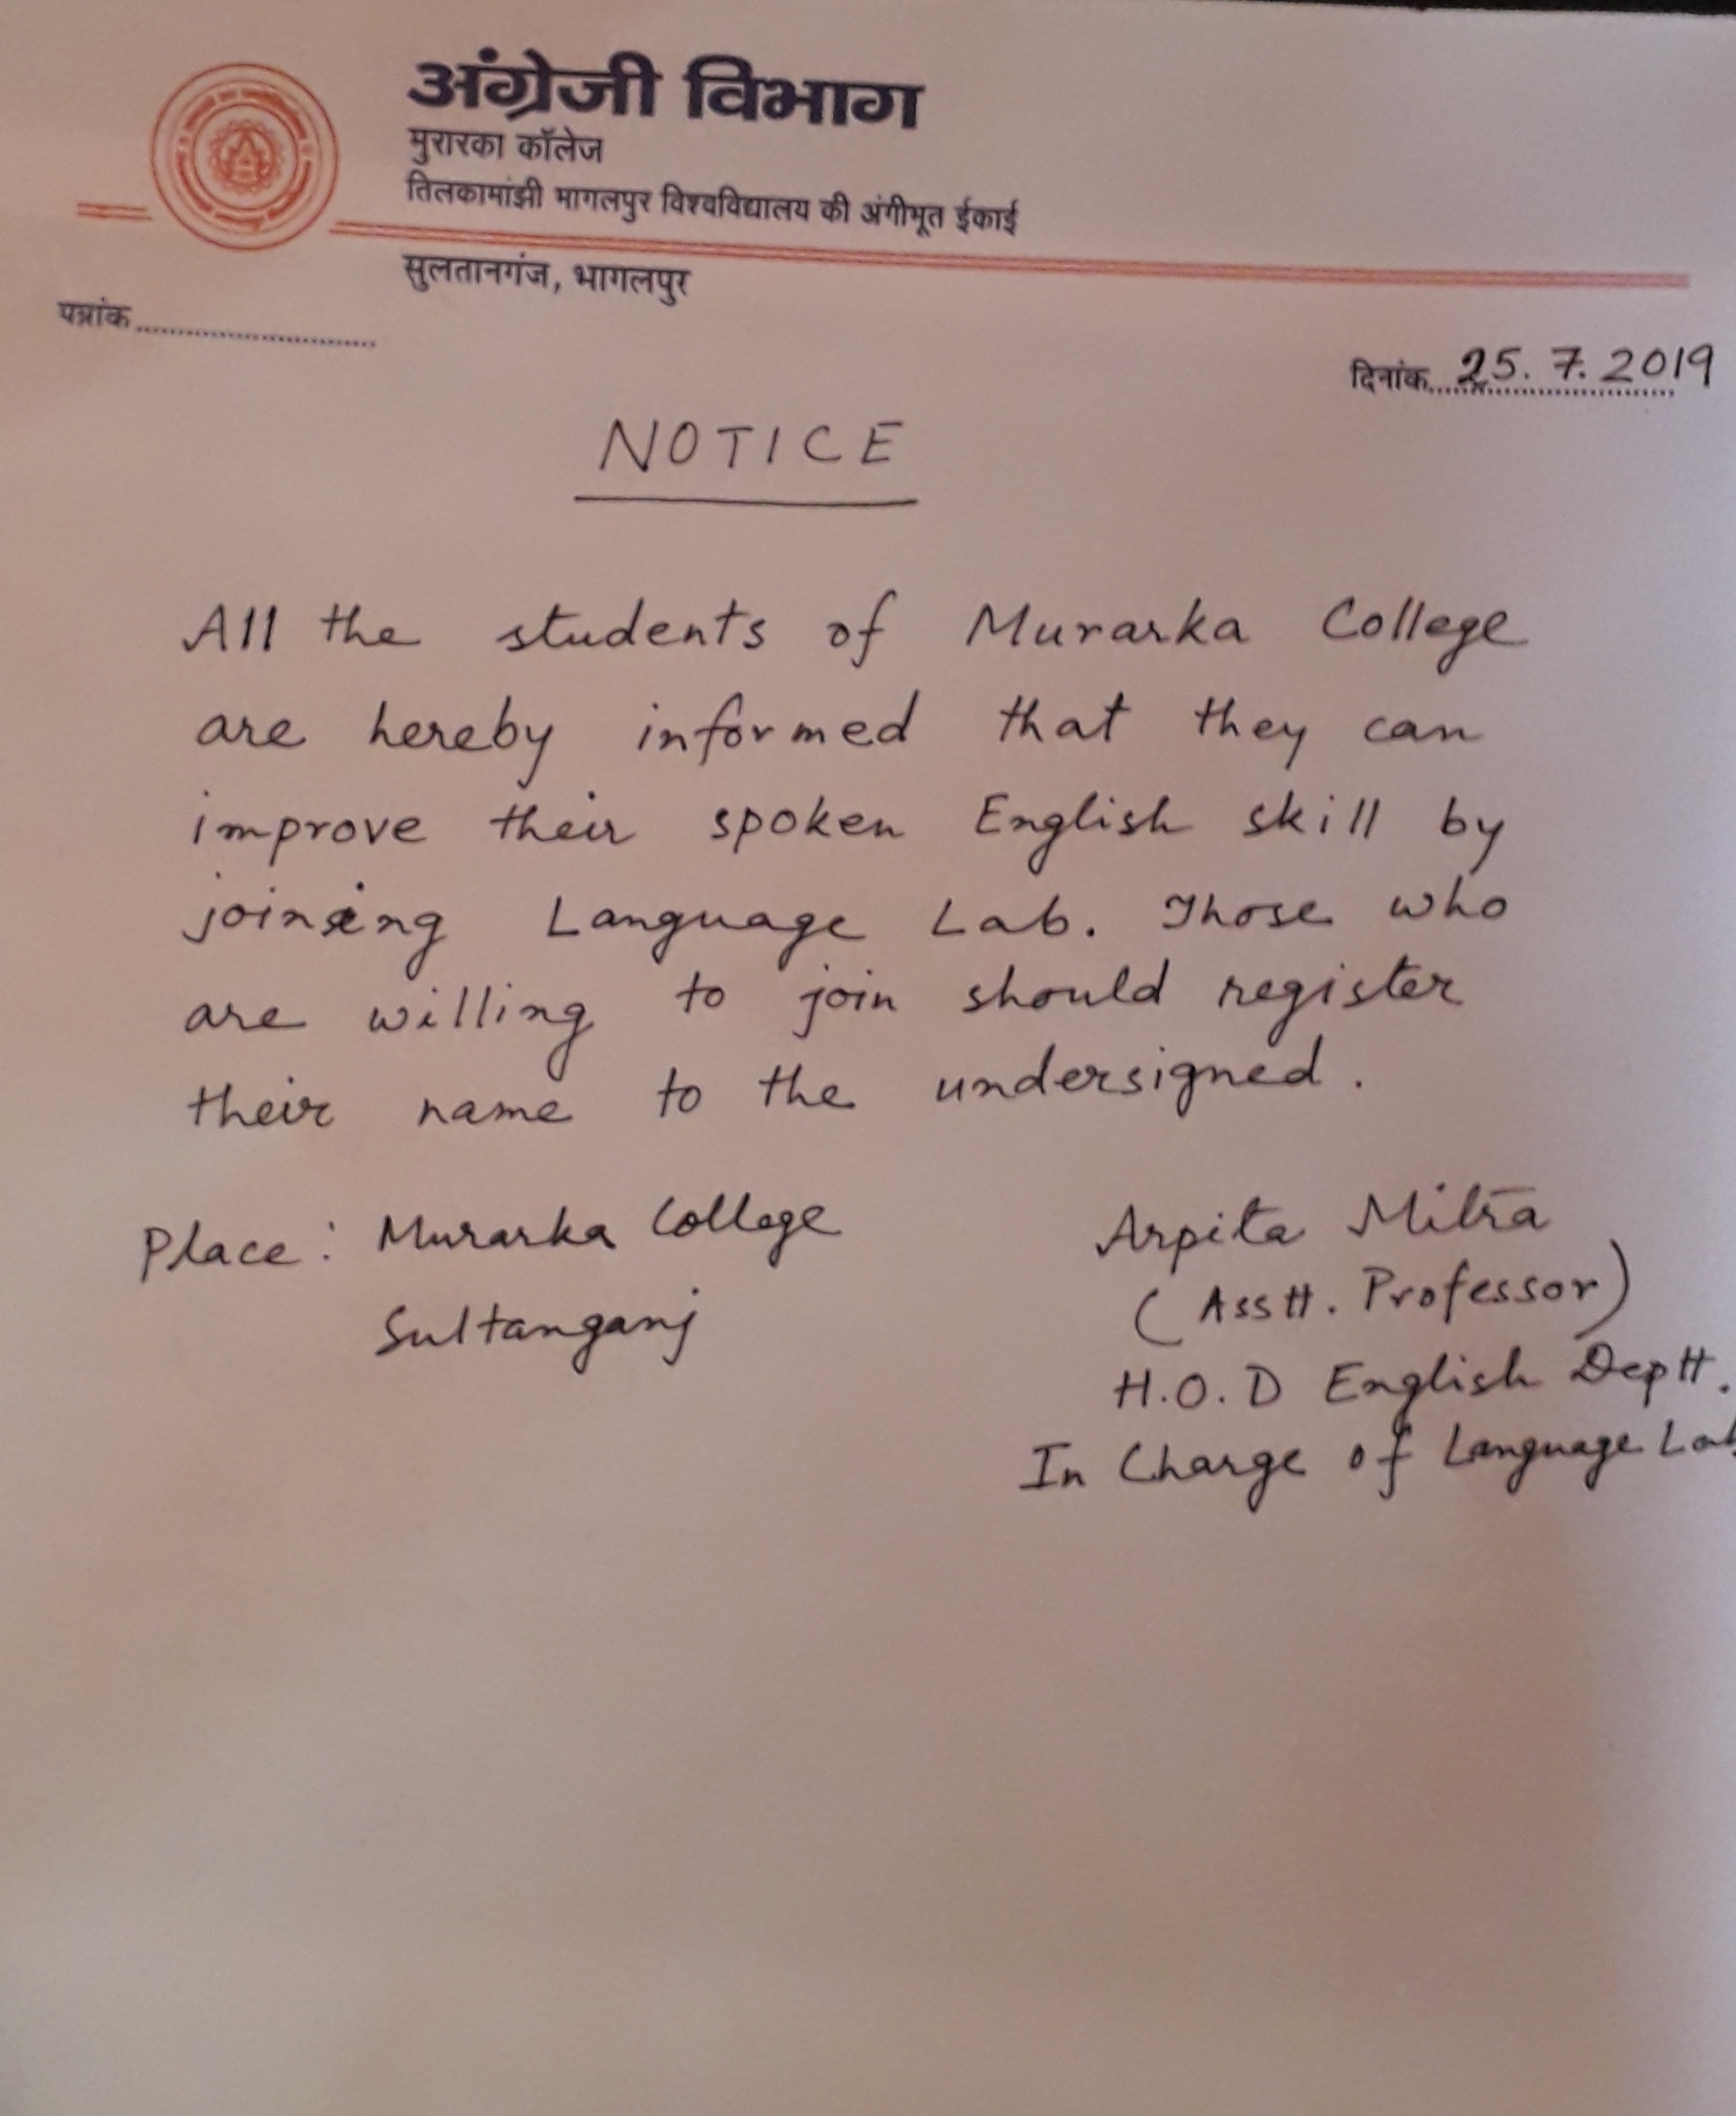 अंग्रेजी विभाग
मुरारका कॉलेज
तिलकामांझी भागलपुर विश्वविद्यालय की अंगीभूत ईकाई
सुलतानगंज, भागलपुर
पत्रांक
दिनांक 25.7.2019
NOTICE
All the students of Murarka College
are hereby informed that they can
improve their spoken English skill by
joining Language Lab. Those who
are willing to join should register
their name to the undersigned.
Place: Murarka College
Sultanganj
Arpita Mitra
(Asstt. Professor)
H.O.D English Deptt.
In Charge of Language Lab